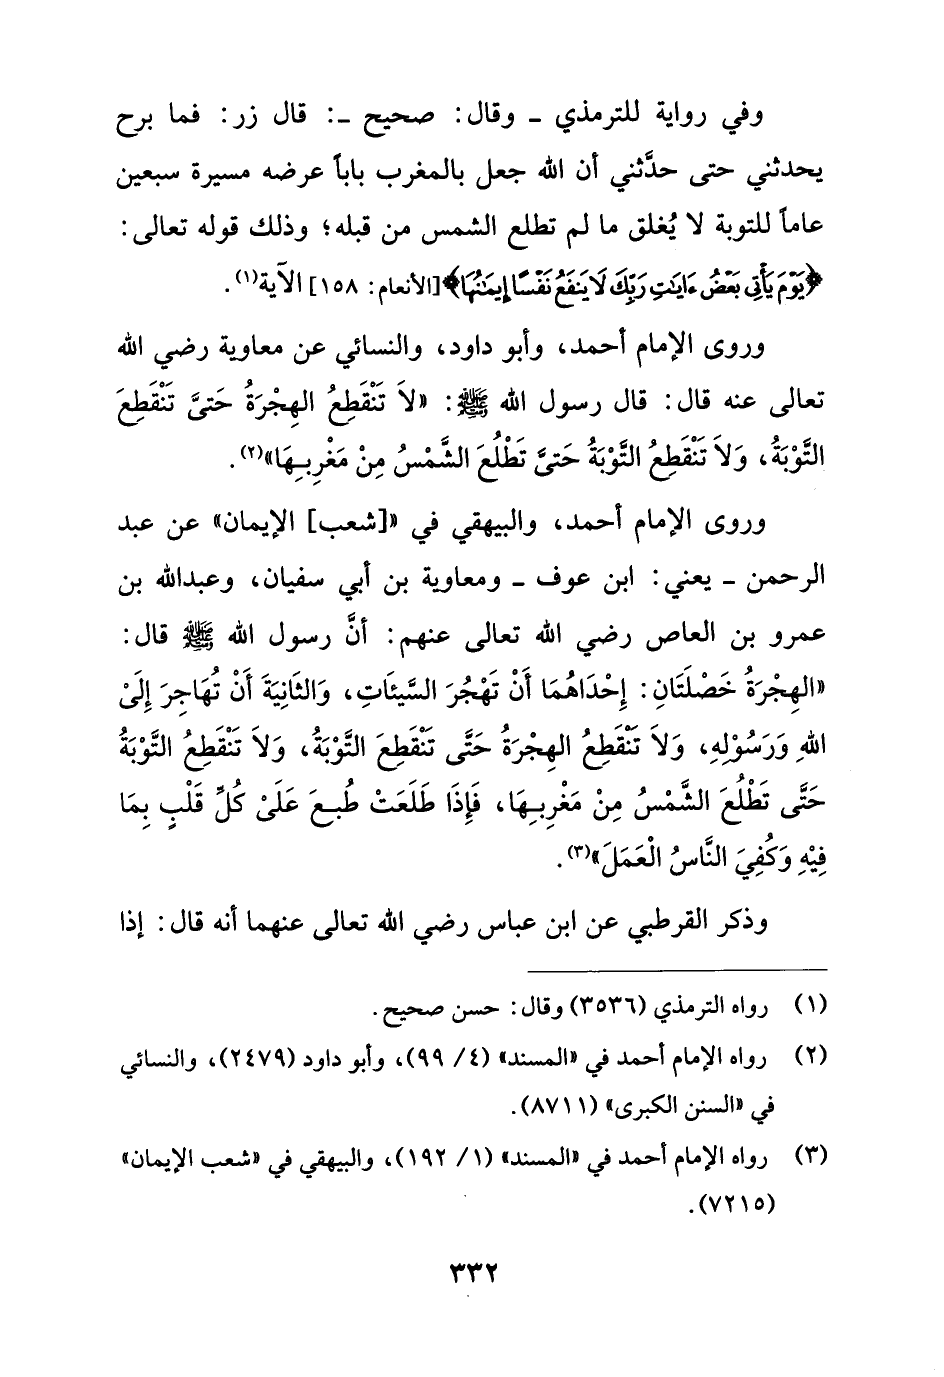 وفي رواية للترمذي ـ وقال: صحيح ـ: قال زر: فما برح
يحدثني حتى حدَّثني أن الله جعل بالمغرب باباً عرضه مسيرة سبعين
عاماً للتوبة لا يُغلق ما لم تطلع الشمس من قبله؛ وذلك قوله تعالى:
﴿يَوْمَ يَأْتِي بَعْضُ ءَايَٰتِ رَبِّكَ لَا يَنفَعُ نَفْسًا إِيمَٰنُهَا﴾[الأنعام: ١٥٨] الآية(١).
وروى الإمام أحمد، وأبو داود، والنسائي عن معاوية رضي الله
تعالى عنه قال: قال رسول الله ﷺ: «لاَ تَنْقَطِعُ الهِجْرَةُ حَتىَّ تَنْقَطِعَ
التَّوْبَةُ، وَلاَ تَنْقَطِعُ التَّوْبَةُ حَتىَّ تَطْلُعَ الشَّمْسُ مِنْ مَغْرِبِهَا»(٢).
وروى الإمام أحمد، والبيهقي في «[شعب] الإيمان» عن عبد
الرحمن ـ يعني: ابن عوف ـ ومعاوية بن أبي سفيان، وعبدالله بن
عمرو بن العاص رضي الله تعالى عنهم: أنَّ رسول الله ﷺ قال:
«الهِجْرَةُ خَصْلَتَانِ: إِحْدَاهُمَا أَنْ تَهْجُرَ السَّيئَاتِ، وَالثَانِيَةَ أَنْ تُهَاجِرَ إِلَىْ
اللهِ وَرَسُوْلِهِ، وَلاَ تَنْقَطِعُ الهِجْرَةُ حَتَّى تَنْقَطِعَ التَّوْبَةُ، وَلاَ تَنْقَطِعُ التَّوْبَةُ
حَتَّى تَطْلُعَ الشَّمْسُ مِنْ مَغْرِبِهَا، فَإِذَا طَلَعَتْ طُبِعَ عَلَىْ كُلِّ قَلْبٍ بِمَا
فِيْهِ وَكُفِيَ النَّاسُ الْعَمَلَ»(٣).
وذكر القرطبي عن ابن عباس رضي الله تعالى عنهما أنه قال: إذا
(١) رواه الترمذي (٣٥٣٦) وقال: حسن صحيح.
(٢) رواه الإمام أحمد في «المسند» (٤/ ٩٩)، وأبو داود (٢٤٧٩)، والنسائي
في «السنن الكبرى» (٨٧١١).
(٣) رواه الإمام أحمد في «المسند» (١/ ١٩٢)، والبيهقي في «شعب الإيمان»
(٧٢١٥).
٣٣٢